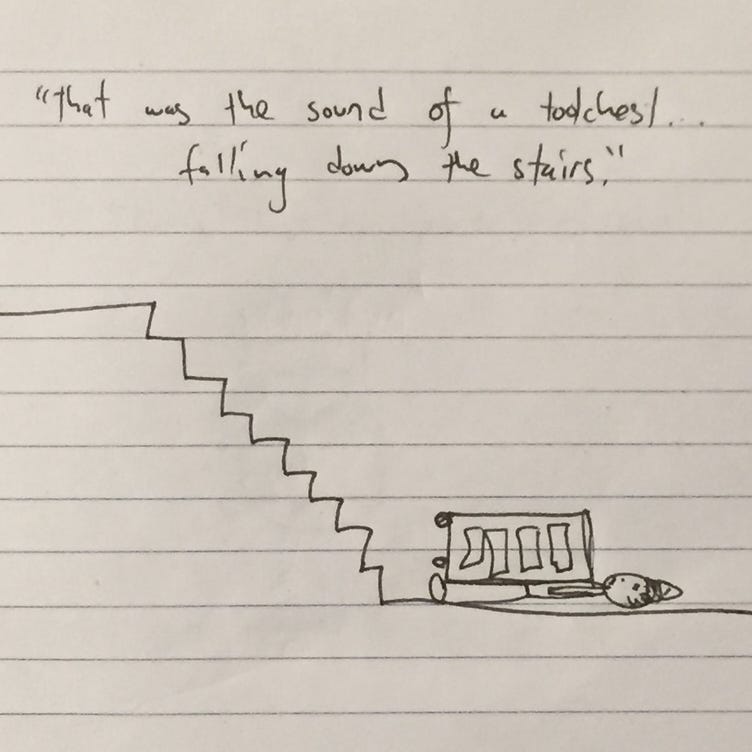 "that was the sound of a toolchest...
falling down the stairs."